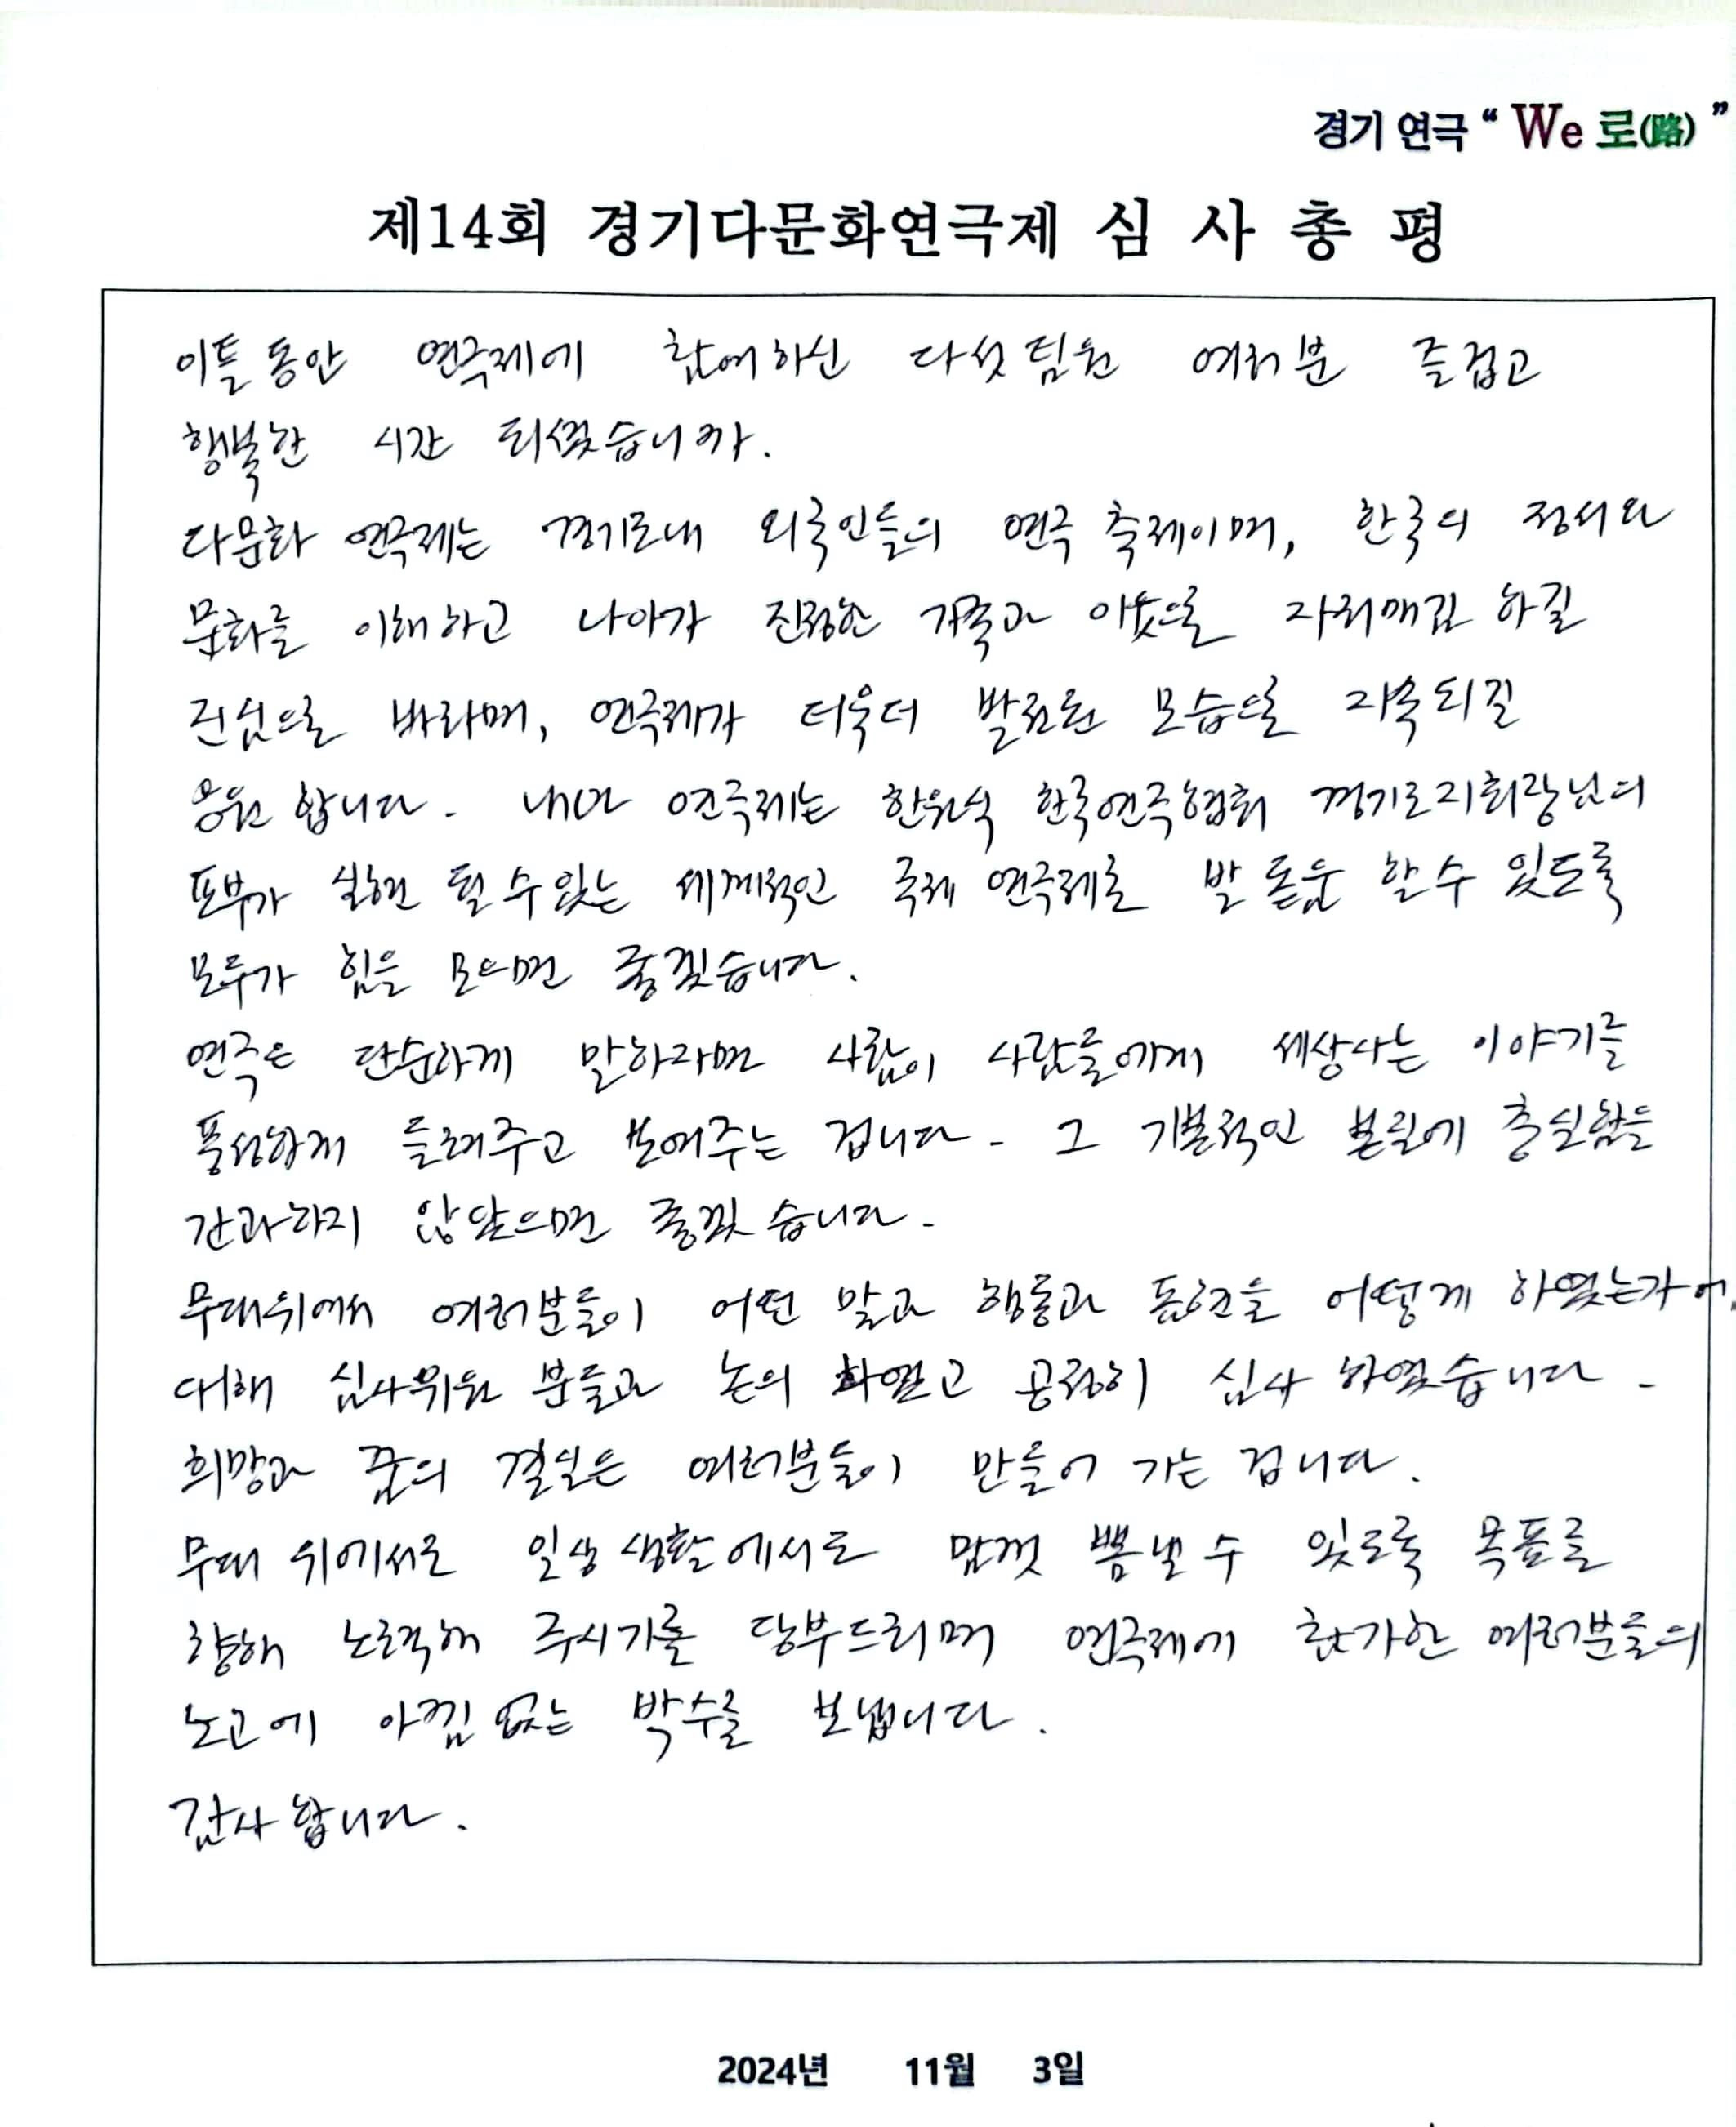 경기 연극 “ We 로(路) ”
제14회 경기다문화연극제 심 사 총 평
이틀 동안 연극제에 참여하신 다섯팀원 여러분 즐겁고
행복한 시간 되셨습니까.
다문화 연극제는 경기도내 외국인들의 연극 축제이며, 한국의 정서와
문화를 이해하고 나아가 진정한 가족과 이웃으로 자리매김 하길
진심으로 바라며, 연극제가 더욱더 발전된 모습으로 지속되길
응원 합니다. 내년 연극제는 한원식 한국연극협회 경기도지회장님의
포부가 실현 될 수 있는 세계적인 국제 연극제로 발 돋움 할 수 있도록
모두가 힘을 모으면 좋겠습니다.
연극은 단순하게 말하자면 사람이 사람들에게 세상사는 이야기를
풍성하게 들려주고 보여주는 겁니다. 그 기본적인 본질에 충실함을
간과하지 않았으면 좋겠습니다.
무대위에서 여러분들이 어떤 말과 행동과 표현을 어떻게 하였는가에
대해 심사위원 분들과 논의 하였고 공정히 심사 하였습니다.
희망과 꿈의 결실은 여러분들이 만들어 가는 겁니다.
무대 위에서도 일상 생활에서도 맘껏 뽐낼 수 있도록 목표를
향해 노력해 주시기를 당부드리며 연극제에 참가한 여러분들의
노고에 아낌 없는 박수를 보냅니다.
감사 합니다.
2024년 11월 3일